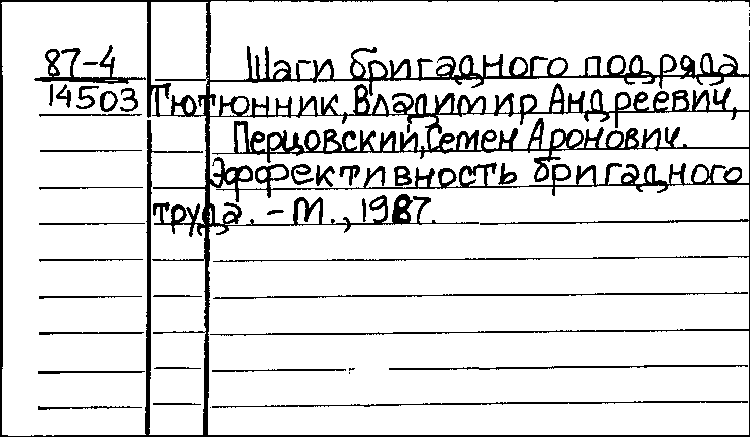 87-4 Шаги бригадного подряда
14503 Тютюнник, Владимир Андреевич,
Перцовский, Семен Аронович.
Эффективность бригадного
труда. - М., 1987.